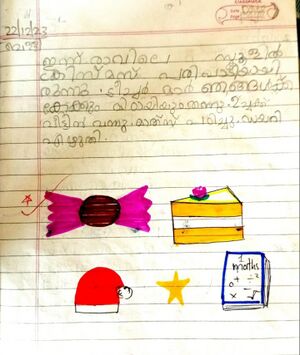 22/12/23
വെള്ളി
ഇന്ന് രാവിലെ സ്കൂളിൽ
ക്രിസ്മസ് പരിപാടിയായി
രുന്നു. ടീച്ചർ മാർ ഞങ്ങൾക്ക്
കേക്കും മിഠായിയും തന്നു. ഉച്ചക്ക്
വീട്ടിൽ വന്നു. മാത്സ് പഠിച്ചു. ഡയറി
എഴുതി.
maths